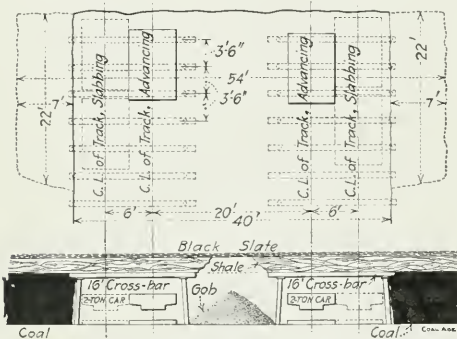 22'
7'
C.L. of Track, Slabbing
C.L. of Track, Advancing
3'6"
54'
3'6"
C.L. of Track, Advancing
C.L. of Track, Slabbing
22'
7'
6'
20'
6'
40'
Black Slate
Shale
16' Cross-bar
Gob
16' Cross-bar
2-TON CAR
2-TON CAR
Coal
Coal
COAL AGE